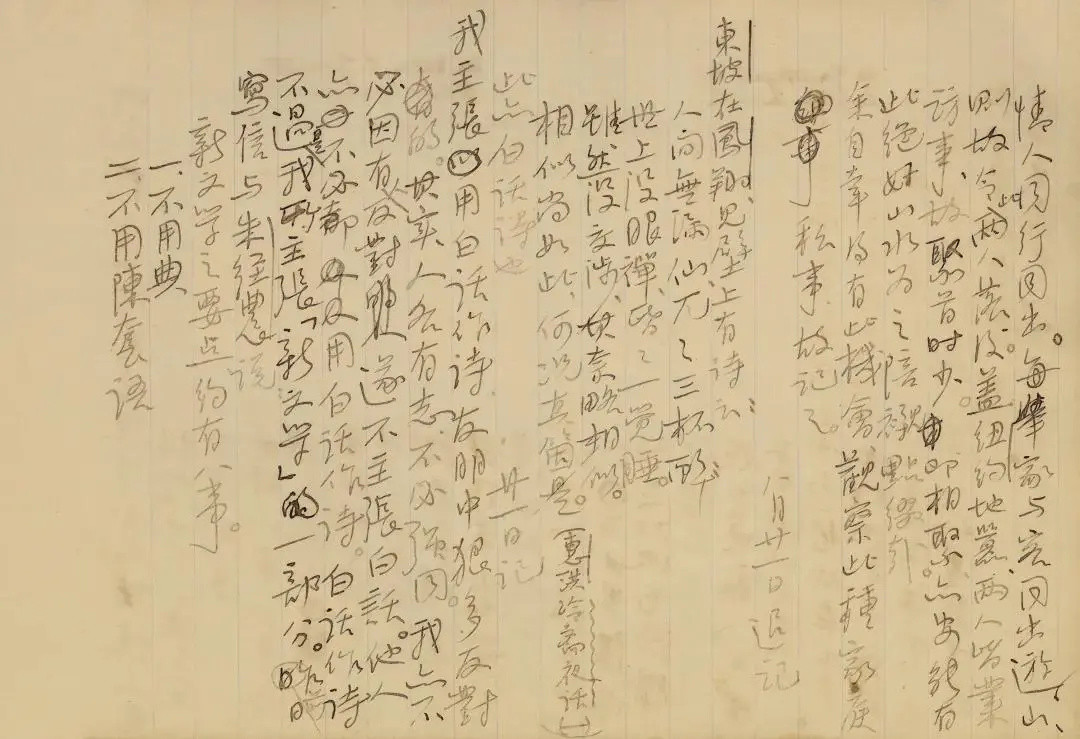 情人同行同出。每舉家与客同出遊山、
則故令此兩人落後。蓋紐約地囂、兩人皆業
訪事、故聚首时少、即相聚、亦安能有
此絕好山水为之陪襯點綴
余自幸得有此機會、觀察此種家庭
私事、故記之。
八月廿一日追記
東坡在鳳翔、見壁上有诗云：
人间無漏仙、兀兀三杯醉。
世上没眼禪、昏昏一覺睡。
雖然没交涉、其奈略相似。
相似尚如此、何況真個是。（惠洪冷齋夜話）
此亦白话诗也 廿一日記
我主張用白话作诗、友朋中很多反對
的。其实人各有志、不必强同。我亦不
必因有人反對遂不主張白話。他人
亦不必都用白话作诗。白话作诗
不過是我所主張「新文学」的一部分。昨日
寫信与朱經農说
新文学之要点约有八事。
一、不用典
二、不用陳套语